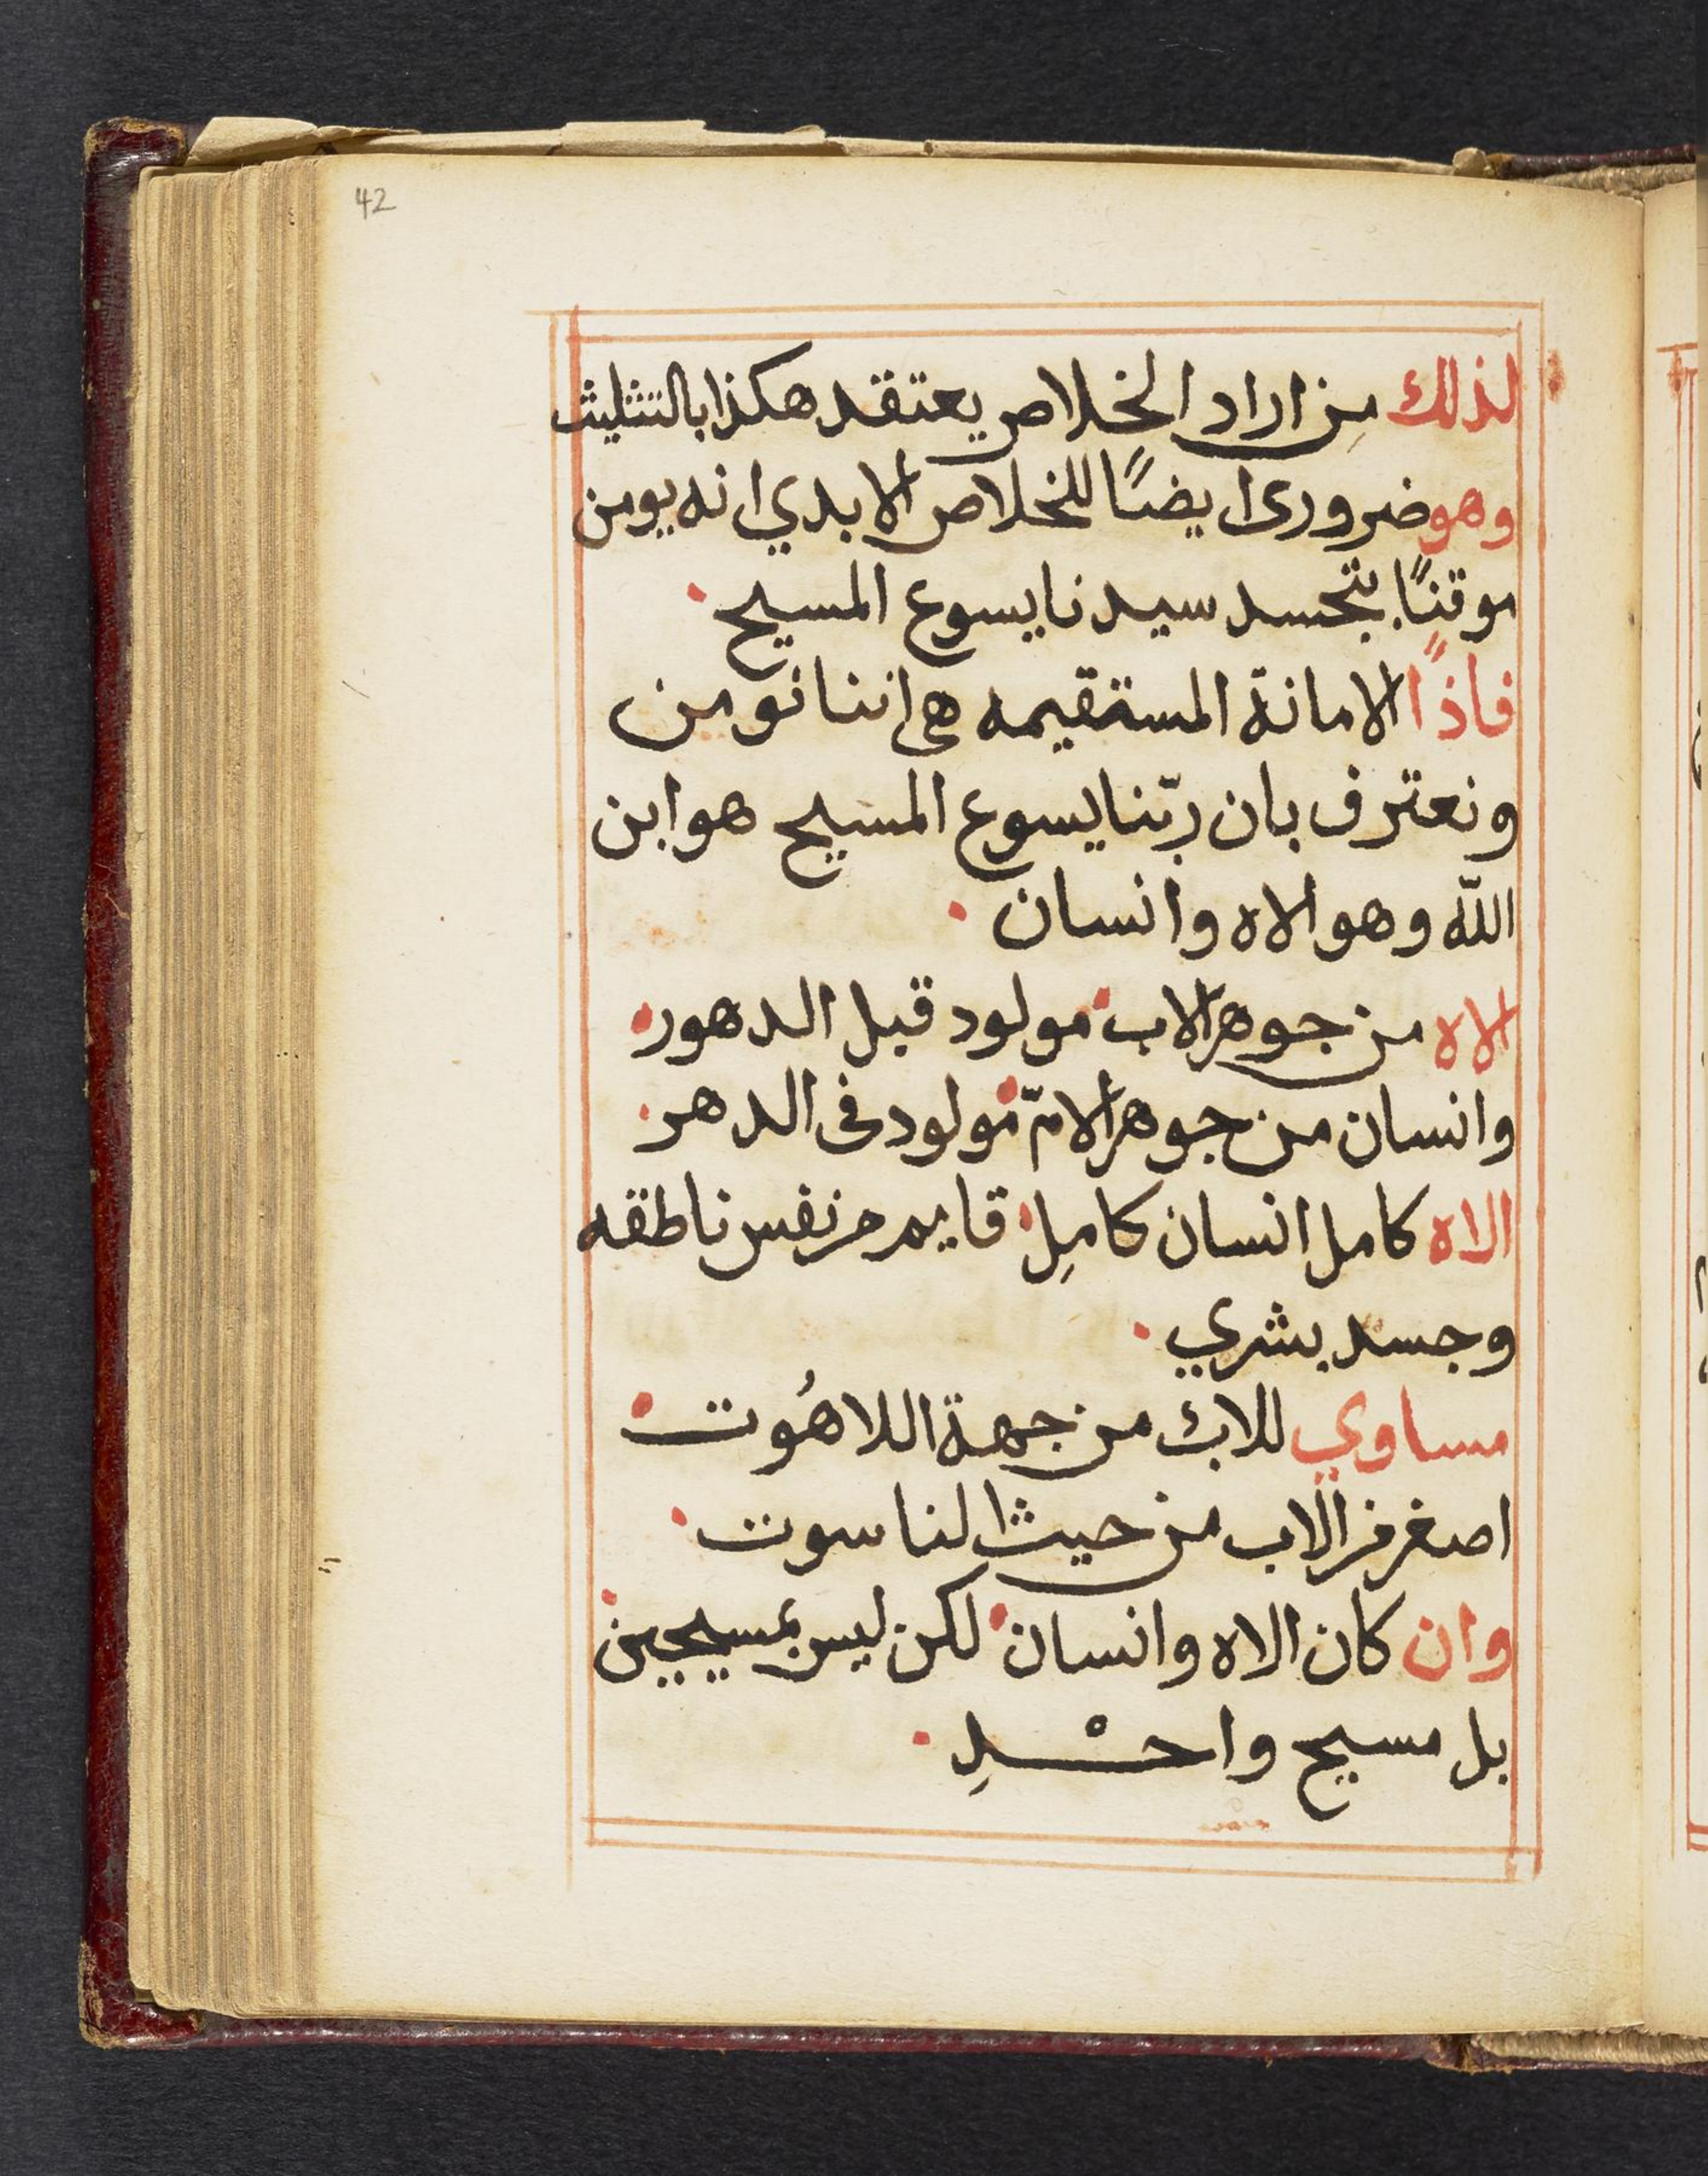 42
لذلك من اراد الخلاص يعتقد هكذا بالتثليث
وهو ضرورى ايضًا للخلاص الابدي انه يومن
موقنًا بتجسد سيدنا يسوع المسيح.
فاذًا الامانة المستقيمه هى اننا نومن
ونعترف بان ربّنا يسوع المسيح هو ابن
اللّه وهو الاه وانسان.
الاه من جوهر الاب. مولود قبل الدهور.
وانسان من جوهر الامّ. مولود فى الدهر.
الاه كامل انسان كامِل. قايم من نفس ناطقه
وجسد بشري.
مساوي للاب من جهة اللاهُوت.
اصغر من الاب من حيث الناسوت.
وان كان الاه وانسان. لكن ليس بمسيحين.
بل مسيح واحْدِ.